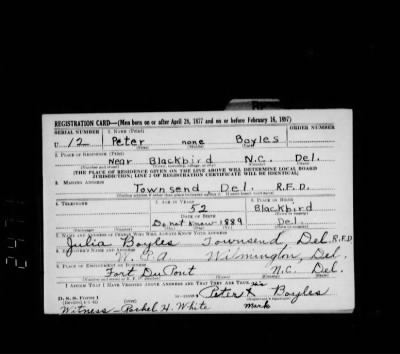 REGISTRATION CARD—(Men born on or after April 28, 1877 and on or before February 16, 1897)
SERIAL NUMBER 1. NAME (Print) ORDER NUMBER
U 12 Peter none Boyles
(First) (Middle) (Last)
2. PLACE OF RESIDENCE (Print)
Near Blackbird N.C. Del.
(Number and street) (Town, township, village, or city) (County) (State)
(THE PLACE OF RESIDENCE GIVEN ON THE LINE ABOVE WILL DETERMINE LOCAL BOARD
JURISDICTION; LINE 2 OF REGISTRATION CERTIFICATE WILL BE IDENTICAL)
3. MAILING ADDRESS
Townsend Del. R.F.D.
4. TELEPHONE 5. AGE IN YEARS 6. PLACE OF BIRTH
52 Blackbird
DATE OF BIRTH
Do not know 1889 Del.
7. NAME AND ADDRESS OF PERSON WHO WILL ALWAYS KNOW YOUR ADDRESS
Julia Boyles Townsend Del. R.F.D
8. EMPLOYER'S NAME AND ADDRESS
W.P.A. Wilmington, Del.
9. PLACE OF EMPLOYMENT OR BUSINESS
Fort DuPont N.C. Del.
(Number and street or R. F. D. number) (Town) (County) (State)
I AFFIRM THAT I HAVE VERIFIED ABOVE ANSWERS AND THAT THEY ARE TRUE.
his
D. S. S. Form 1 Peter X Boyles
(Revised 4-1-42) (over) mark
Witness - H. White